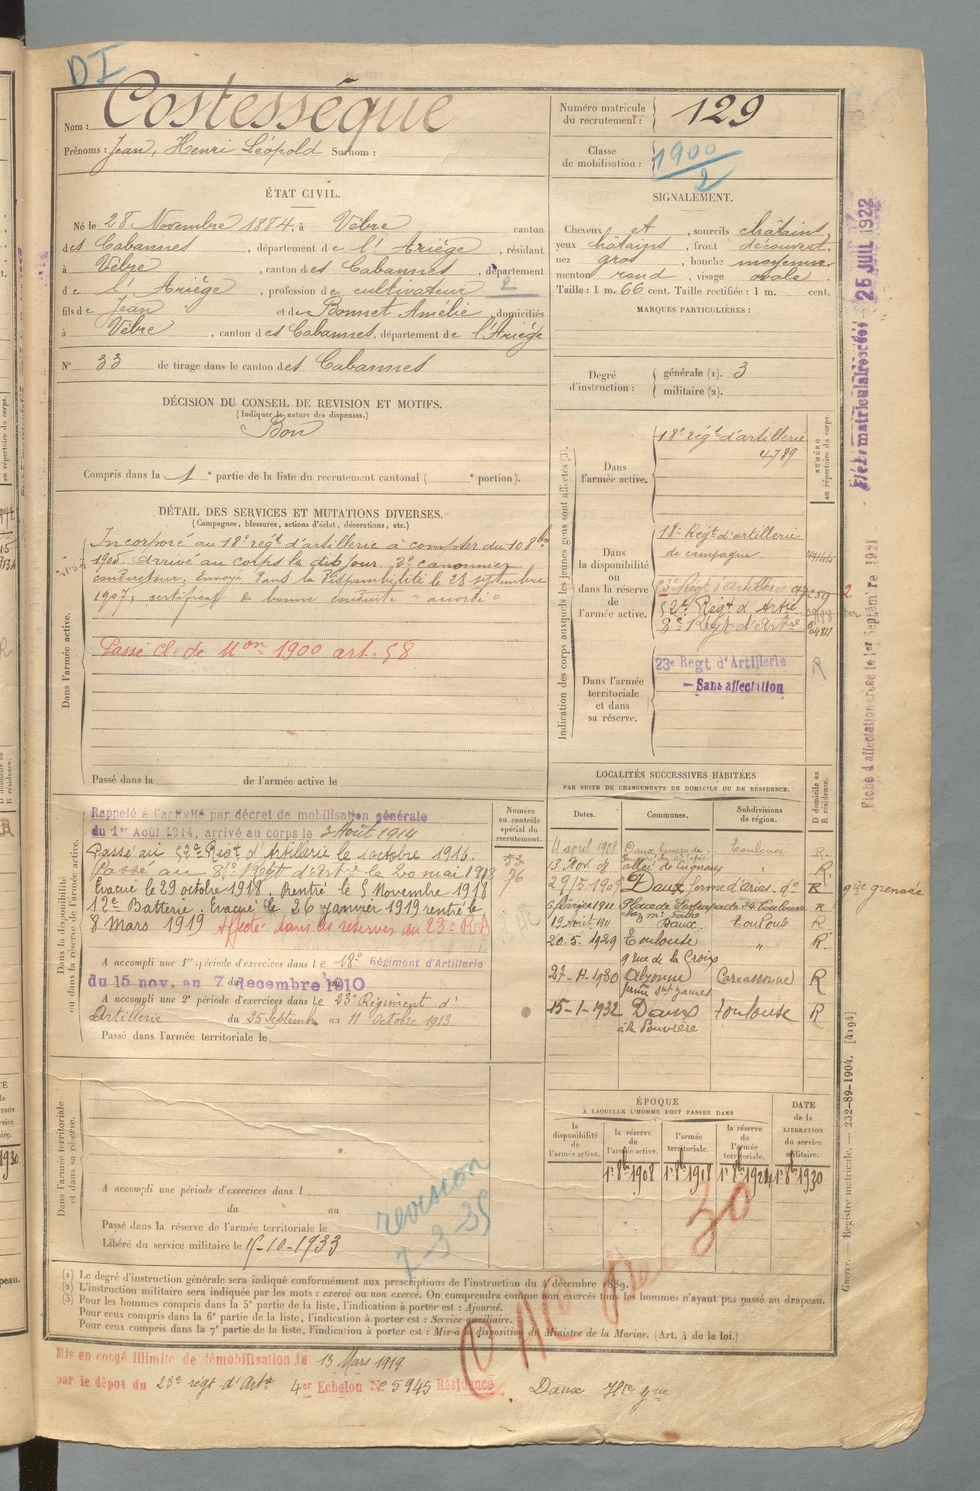 DI
Nom : Costessèque
Prénoms : Jean, Henri Léopold Surnom :
ÉTAT CIVIL.
Né le 28 Novembre 1884, à Vèbre canton
des Cabannes, département de l'Ariège, résidant
à Vèbre, canton des Cabannes, département
de l'Ariège, profession de cultivateur 2
fils de Jean et de Bonnet Amélie, domiciliés
à Vèbre, canton des Cabannes, département de l'Ariège
N° 33 de tirage dans le canton des Cabannes
DÉCISION DU CONSEIL DE REVISION ET MOTIFS.
(Indiquer la nature des dispenses.)
Bon
Compris dans la 1e partie de la liste du recrutement cantonal ( e portion).
DÉTAIL DES SERVICES ET MUTATIONS DIVERSES.
(Campagnes, blessures, actions d'éclat, décorations, etc.)
Dans l'armée active.
Incorporé au 18e régt d'artillerie à compter du 10 8bre
1905, arrivé au corps le dit jour, 2e canonnier
conducteur, Envoyé dans la disponibilité le 28 septembre
1907, certificat de bonne conduite "accordé"
Passé cl. de Mon 1900 art. 58
Passé dans la de l'armée active le
Dans la disponibilité
ou dans la réserve de l'armée active.
Rappelé à l'activité par décret de mobilisation générale
du 1er Août 1914, arrivé au corps le 3 Août 1914
Passé au 52e Régt d'Artillerie le 1 octobre 1916.
Passé au 8e Régt d'Artie le 20 mai 1918
Evacué le 29 octobre 1918. Rentré le 5 Novembre 1918
12e Batterie. Evacué le 26 janvier 1919 rentré le
8 mars 1919 Affecté dans les réserves du 23e R.A
A accompli une 1re période d'exercices dans le 18e Régiment d'Artillerie
du 15 nov. au 7 decembre 1910
A accompli une 2e période d'exercices dans le 23e Régiment d'
Artillerie du 25 Septembre au 11 Octobre 1913
Passé dans l'armée territoriale le
Numéro
au contrôle
spécial du
recrutement.
76
Dans l'armée territoriale
et dans sa réserve.
A accompli une période d'exercices dans l
du au
Passé dans la réserve de l'armée territoriale le
Libéré du service militaire le 15-10-1933
revision
7-3-35
Numéro matricule
du recrutement : 129
Classe
de mobilisation : 1900
2
SIGNALEMENT.
Cheveux et, sourcils châtains,
yeux châtains, front découvert.
nez gros, bouche moyenne
menton rond, visage ovale
Taille : 1 m. 66 cent. Taille rectifiée : 1 m. cent.
MARQUES PARTICULIÈRES :
Degré
d'instruction :
générale (1). 3
militaire (2).
Indication des corps auxquels les jeunes gens sont affectés (3).
NUMÉRO
au répertoire du corps.
Dans
l'armée active.
18e régt d'artillerie
4789
Dans
la disponibilité
ou
dans la réserve
de
l'armée active.
18e Régt d'artillerie
de campagne
23e Régt d'artillerie
52e Régt d'Artie
8e Régt d'Artie
Dans l'armée
territoriale
et dans
sa réserve.
23e Régt d'Artillerie
- Sans affectation
R
LOCALITÉS SUCCESSIVES HABITÉES
PAR SUITE DE CHANGEMENTS DE DOMICILE OU DE RÉSIDENCE.
Dates. Communes. Subdivisions de région. D domicile ou R résidence.
4 avril 1908 Toulouse R.
13. Nov. 08 " R
29/5.1909 Daux, ferme d'arias. do R
6 février 1911 34 Toulouse R
19 Août 1911 Daux Toulouse R
20.5.1929 Toulouse " R.
9 rue de la Croix
27-11-1930 Alzonne Carcassonne R
ferme St James
15-1-1932 Daux Toulouse R
ÉPOQUE
À LAQUELLE L'HOMME DOIT PASSER DANS
la disponibilité de l'armée active.
la réserve de l'armée active.
l'armée territoriale.
la réserve de l'armée territoriale.
DATE
de la
LIBÉRATION
du service
militaire.
1er 8bre 1908
1er 8bre 1918
1er 8bre 1930
Fiche matriculaire créée 25 JUIL 1922
Fiche d'affectation créée le 1er Septembre 1921
Guerre. — Registre matricule. — 232-89-1904. [4194]
(1) Le degré d'instruction générale sera indiqué conformément aux prescriptions de l'instruction du 4 décembre 1889.
(2) L'instruction militaire sera indiquée par les mots : exercé ou non exercé. On comprendra comme non exercés tous les hommes n'ayant pas passé au drapeau.
(3) Pour les hommes compris dans la 5e partie de la liste, l'indication à porter est : Ajourné.
Pour ceux compris dans la 6e partie de la liste, l'indication à porter est : Service auxiliaire.
Pour ceux compris dans la 7e partie de la liste, l'indication à porter est : Mis à la disposition du Ministre de la Marine. (Art. 4 de la loi.)
30
Mis en congé illimité de démobilisation le 13 Mars 1919
par le dépôt du 23e régt d'Artie 4er Echelon No 5945 Résidence Daux Hte Gne